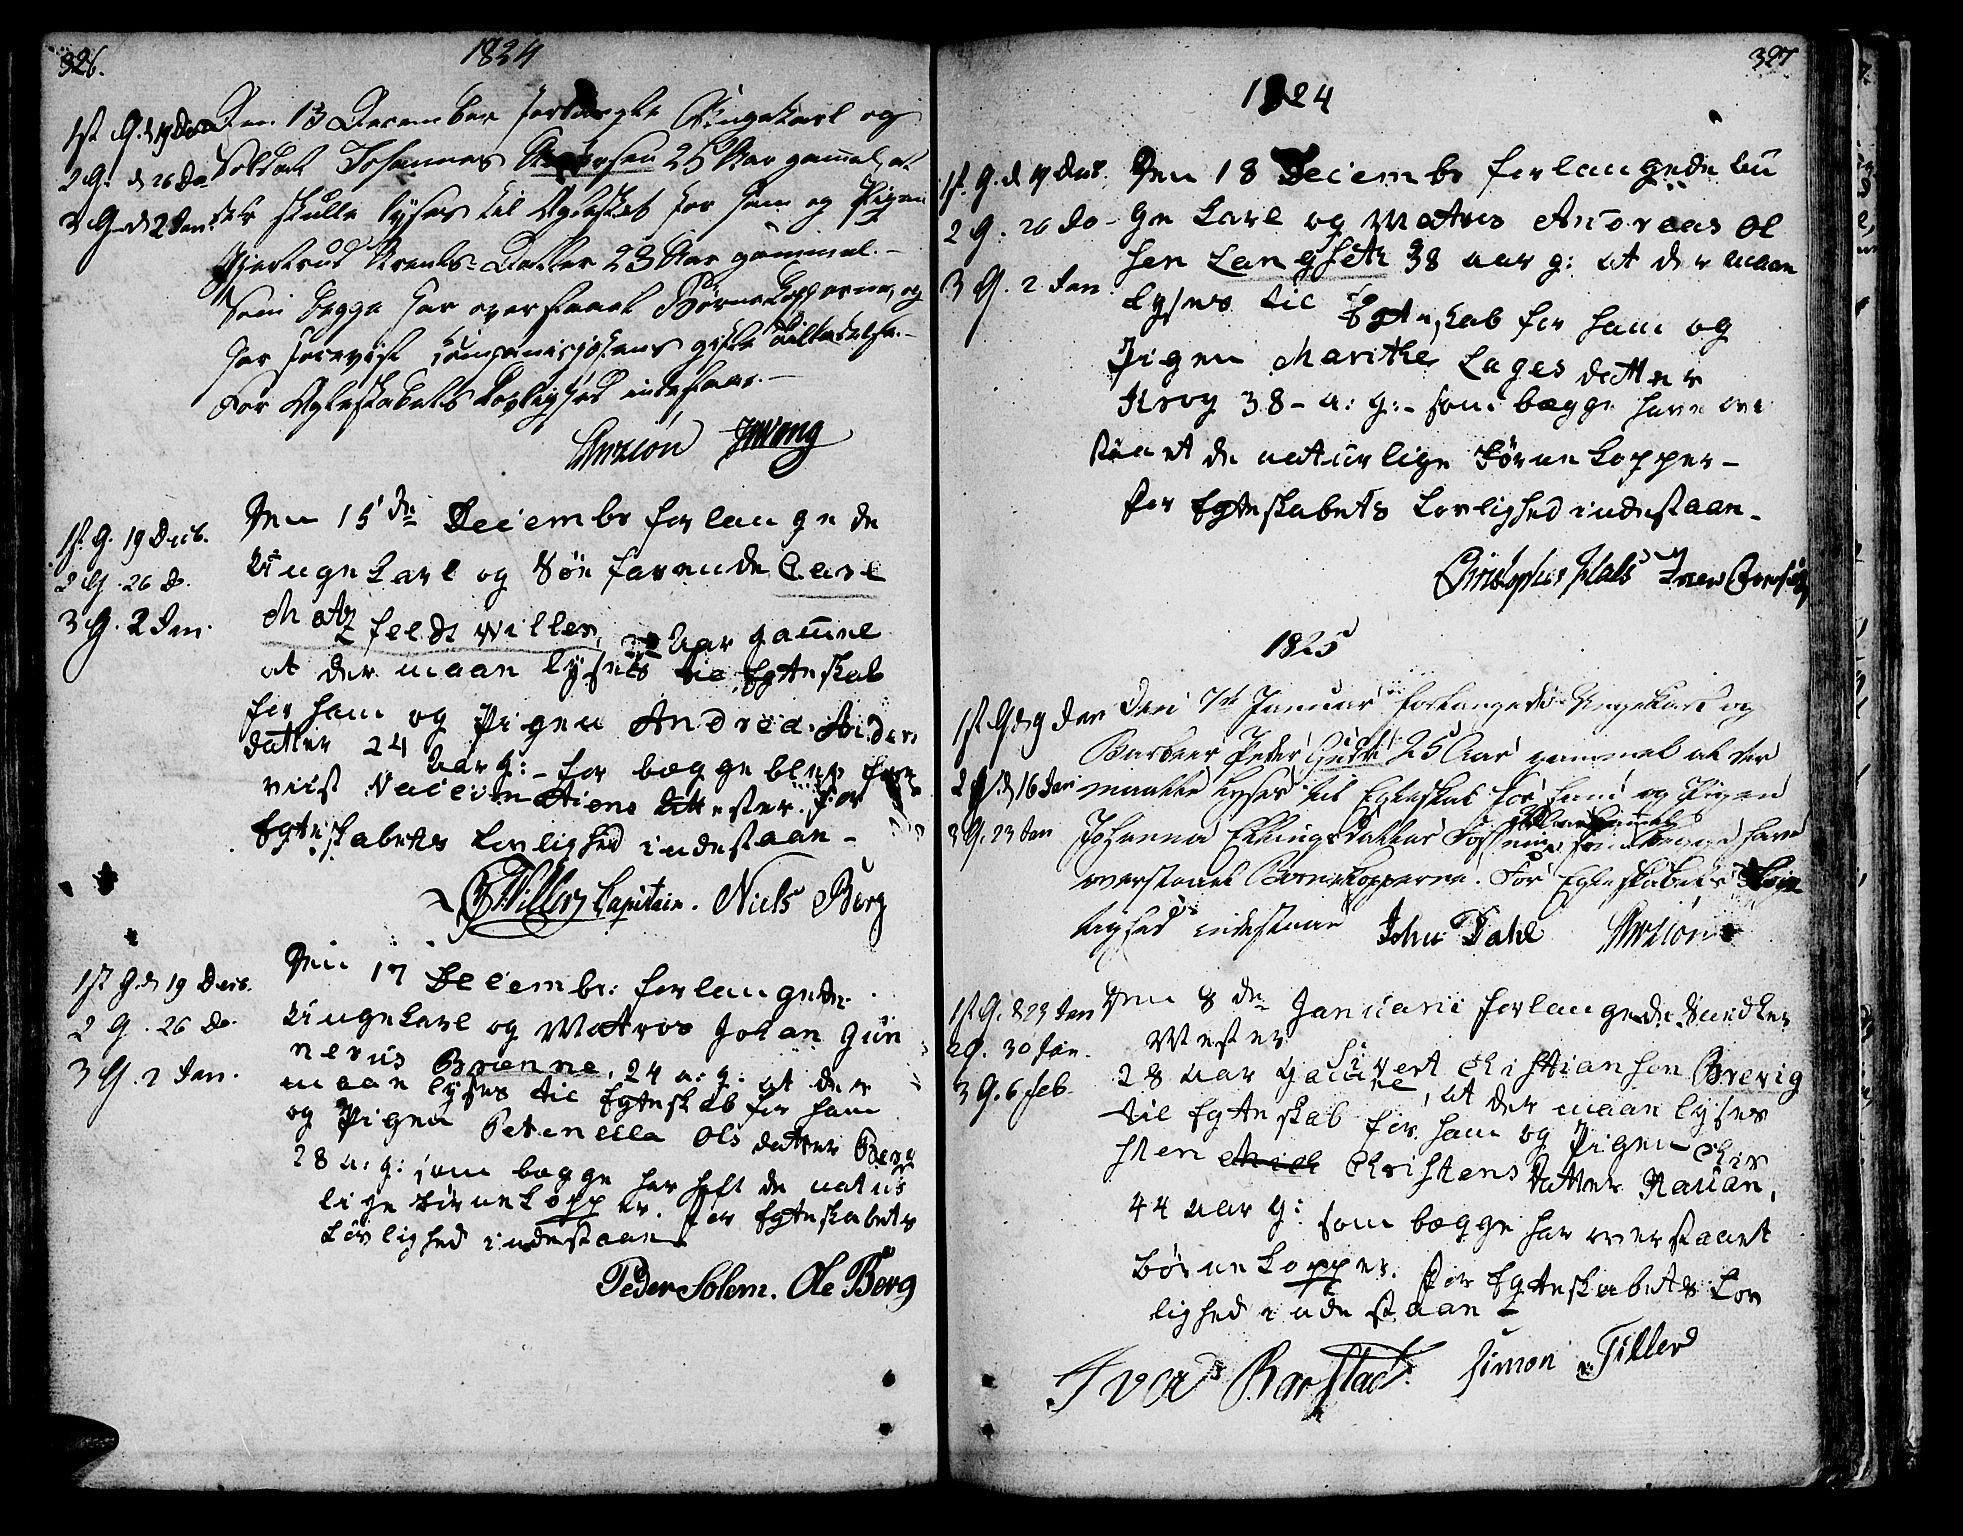 326.
1824
1st G. d 19 Dec
2 G. d 26 Do
3 G. d 2 Jan.
Den 13 December forlangte Ungekarl og
Soldat Johannes 25 Aar gamel, at
der skulle lyses til Ægteskab for ham og Pigen
Gjertrud Arents-Datter 23 Aar gammel.-
Som begge har overstaaet Børnekopperne, og
har foreviist Compagniechefens gifte Tilladelse.-
For Ægteskabets Lovlighed indestaar.-
Arnzion JWang
1st. G. 19 Decb.
2 G. 26 Do.
3 G. 2 Jan.
Den 15 de Deciembr forlangede
Ungekarl og Søe farende Carl
Matzfeldt Willer, 30 Aar gamel
at der maan lyses til Egteskab
for ham og Pigen Andrea Anders
datter 24 Aar g:- for begge blev fore
viist Vaccinations Attester. For
Egteskabets Lovlighed indestaan-
Willer Capitain. Niels Berg
1st G. d 19 Decb.
2 G. 26 Do.
3 G. 2 Jan.
Den 17 Decembr: forlangede
Ungekarl og Matros Johan Gun
nerus Brænne, 24 a: g: at der
maan lyses til Egteskab for ham
og Pigen Petenella Ols datter Berg
28 a: g: som begge har haft de natur
lige Børnekopper. For Egteskabets
Lovlighed indestaan
Peder Solem. Ole Berg
327
1824
1st. G. d 19 Decb.
2 G. 26 Do-
3 G. 2 Jan.
Den 18 Deciembr forlangede un
ge karl og Matros Andreas Ol
sen Langseth 38 aar g: at der maan
lyses til Egteskab for ham og
Pigen Marithe Lages datter
Krog 38- a: g:- som begge have over
staaet de naturlige Børnekopper-
For Egteskabets Lovlighed indestaan-
Christopher Hals
1825
1st G d 9 Jan
2 G d 16 Jan
3 G. 23 Jan
Den 7de Januar forlangede Ungekarl og
Peder 25 Aar gammel at der
maatte lyses til Egteskab for ham og Pigen
Johanna Ellingsdatter begge have
overstaaet Børnekopperne. For Egteskabets Lov
lighed indestaar John Dahl Arnzion
1st. G. d 23 Jan
2 G. 30 Jan.
3 G. 6 Feb.
Den 8 de Januarii forlangede Snedker
Mester Sivert Christiansen Brevig
28 aar gamel, at der maan lyses
til Egteskab for ham og Pigen Chir
sten Christens datter Stavan,
44 aar g: som begge har overstaaet
Børnekopper. For Egteskabets Lov
lighed indestaan-
Iver Barstad. Simon Tiller